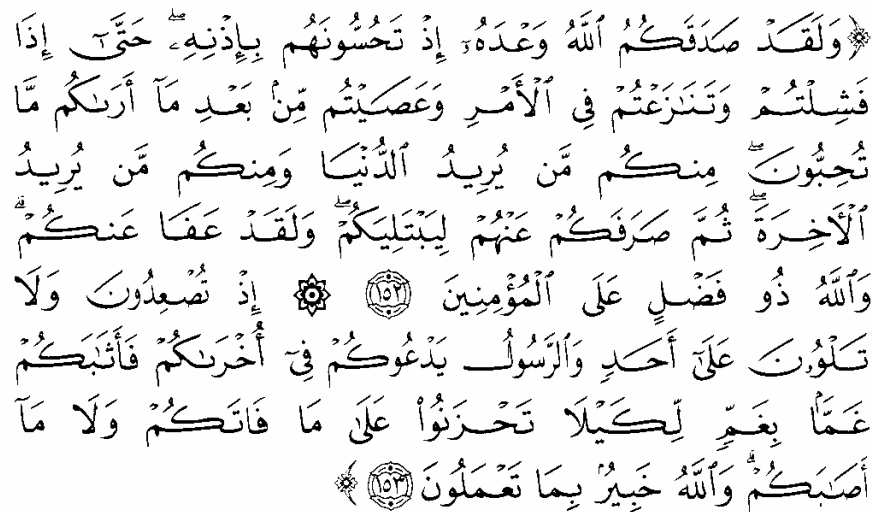 ﴿ وَلَقَدْ صَدَقَكُمُ ٱللَّهُ وَعْدَهُۥٓ إِذْ تَحُسُّونَهُم بِإِذْنِهِۦۖ حَتَّىٰٓ إِذَا
فَشِلْتُمْ وَتَنَـٰزَعْتُمْ فِى ٱلْأَمْرِ وَعَصَيْتُم مِّنۢ بَعْدِ مَآ أَرَىٰكُم مَّا
تُحِبُّونَۚ مِنكُم مَّن يُرِيدُ ٱلدُّنْيَا وَمِنكُم مَّن يُرِيدُ
ٱلْـَٔاخِرَةَۖ ثُمَّ صَرَفَكُمْ عَنْهُمْ لِيَبْتَلِيَكُمْۖ وَلَقَدْ عَفَا عَنكُمْۗ
وَٱللَّهُ ذُو فَضْلٍ عَلَى ٱلْمُؤْمِنِينَ ١٥٢ ۞ إِذْ تُصْعِدُونَ وَلَا
تَلْوُۥنَ عَلَىٰٓ أَحَدٍ وَٱلرَّسُولُ يَدْعُوكُمْ فِىٓ أُخْرَىٰكُمْ فَأَثَـٰبَكُمْ
غَمًّۢا بِغَمٍّ لِّكَيْلَا تَحْزَنُوا۟ عَلَىٰ مَا فَاتَكُمْ وَلَا مَآ
أَصَـٰبَكُمْۗ وَٱللَّهُ خَبِيرٌۢ بِمَا تَعْمَلُونَ ١٥٣ ﴾